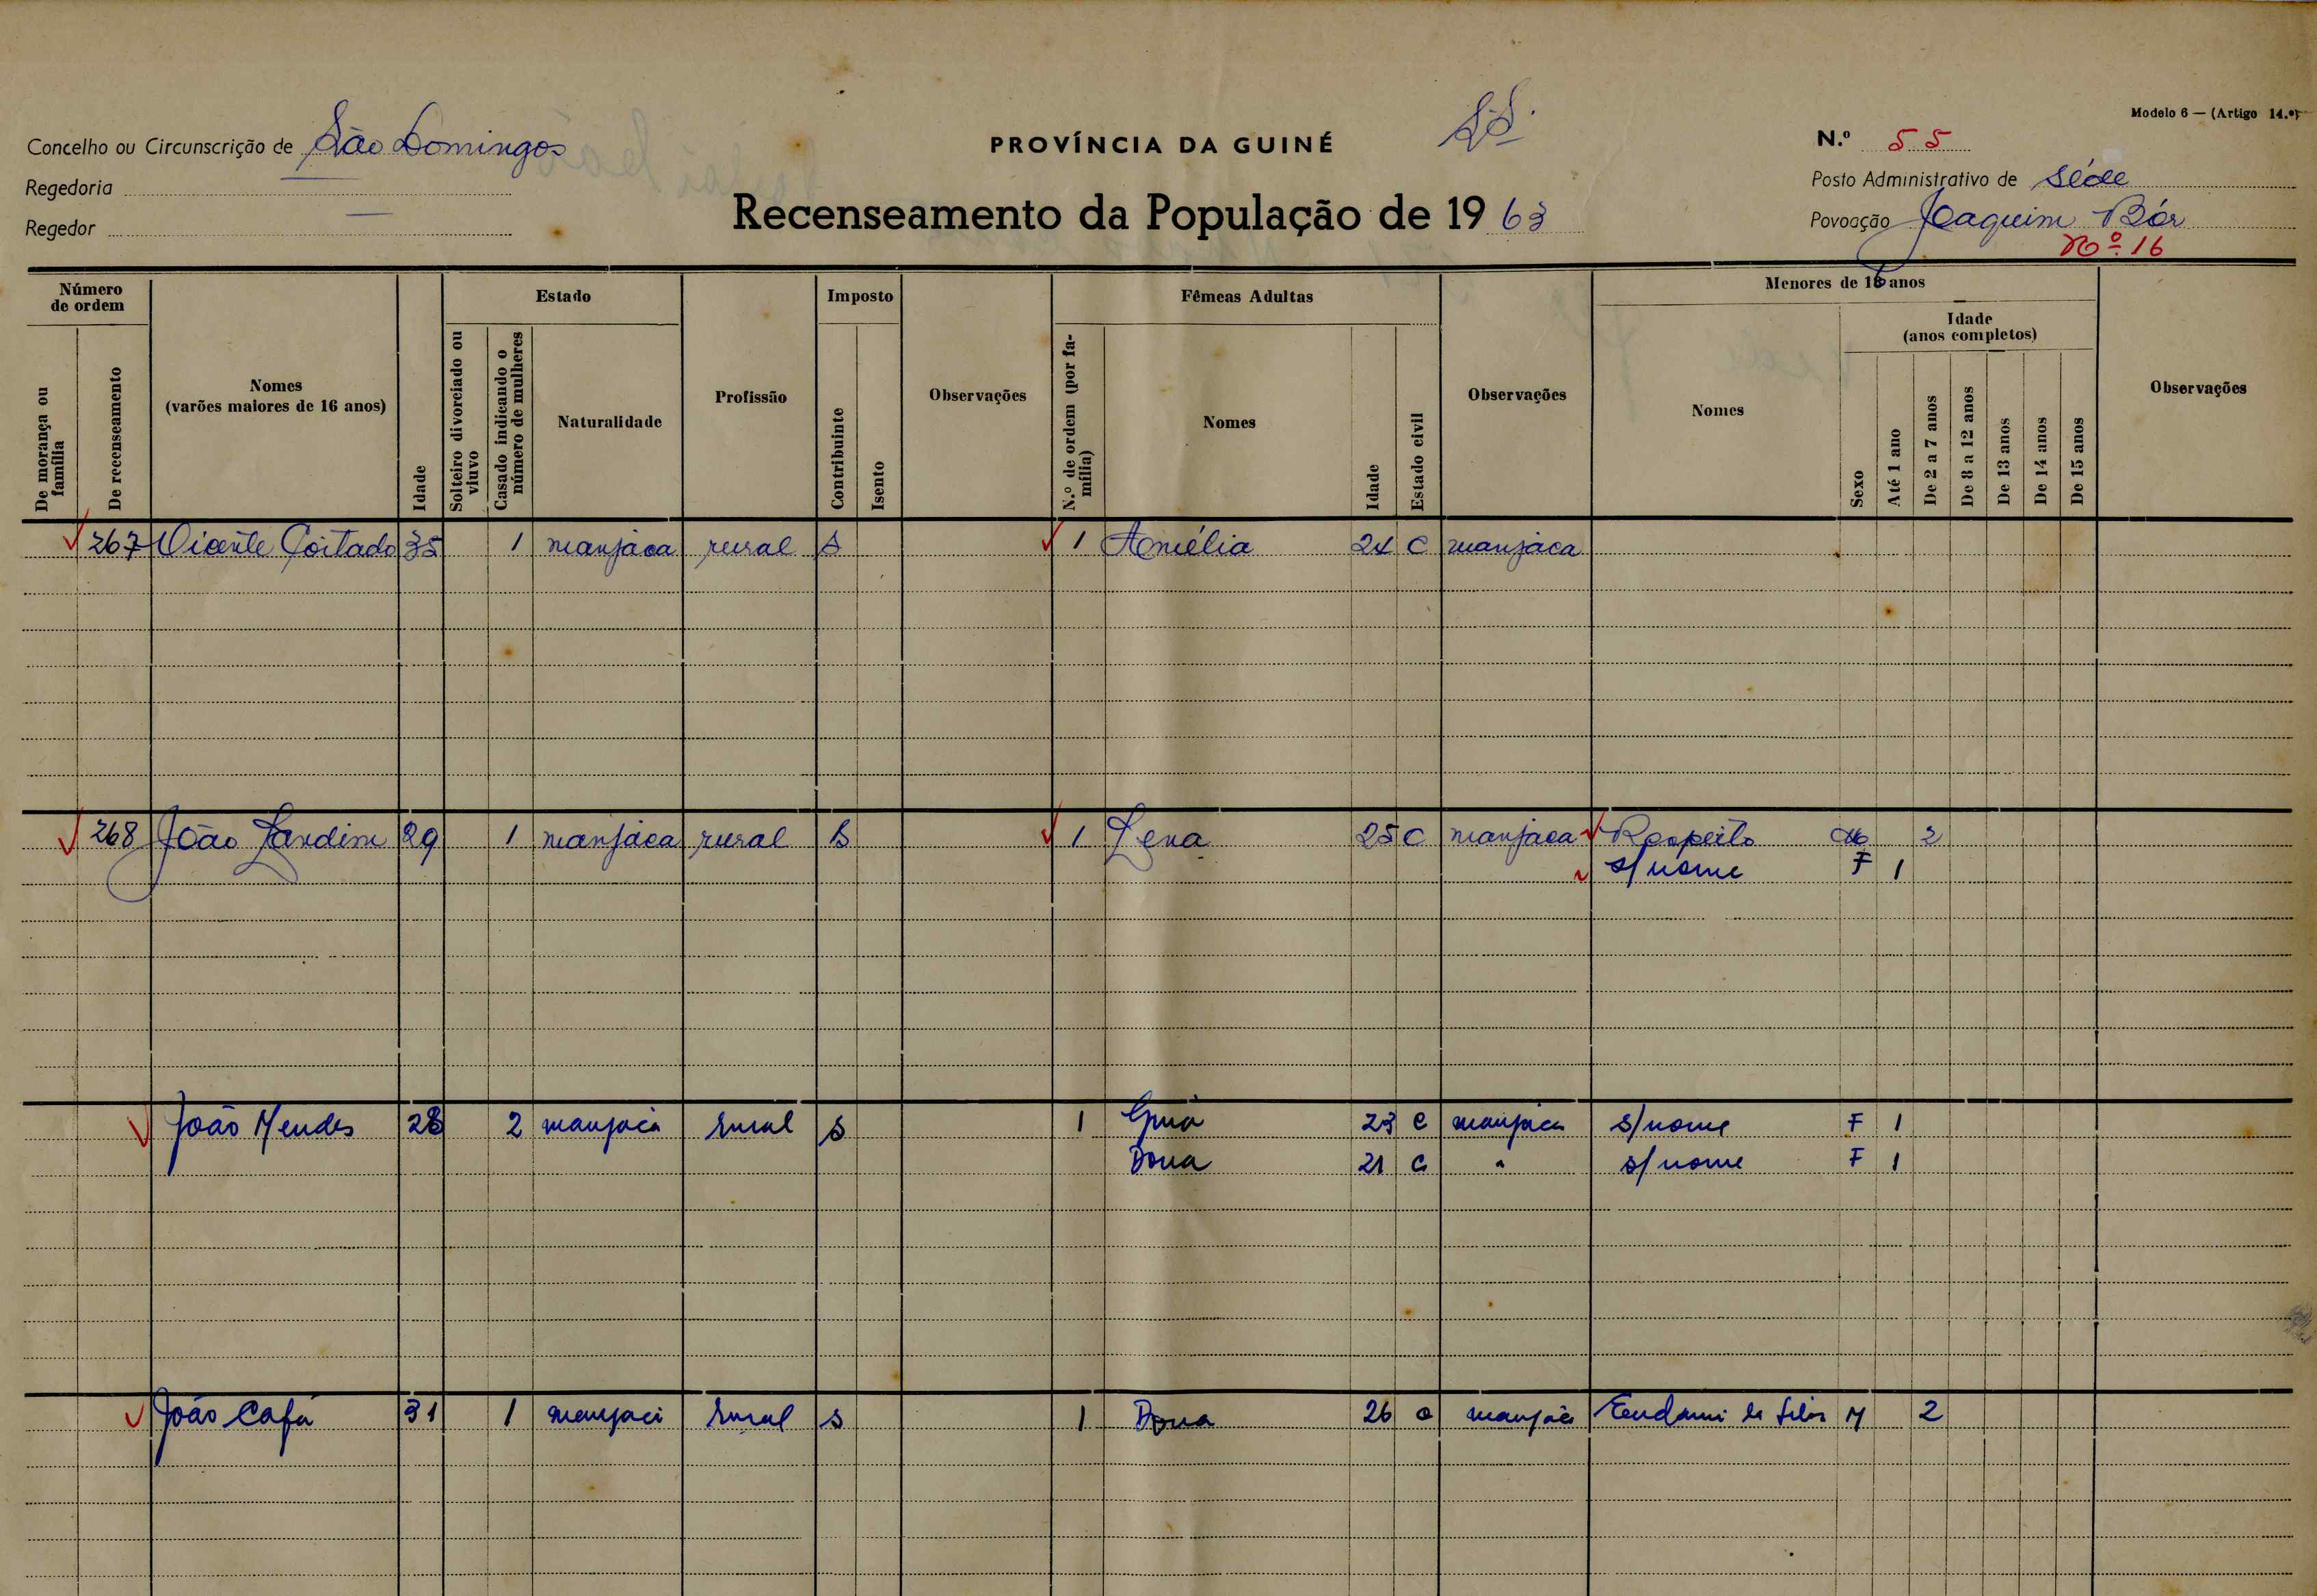 Modelo 6 — (Artigo 14.º)
Concelho ou Circunscrição de São Domingos
PROVÍNCIA DA GUINÉ
N.º 55
Regedoria —
Posto Administrativo de Séde
Regedor —
Recenseamento da População de 1963
Povoação Joaquim Bór
Nº 16
Número de ordem
De morança ou família
De recenseamento
Nomes
(varões maiores de 16 anos)
Idade
Estado
Solteiro divorciado ou viuvo
Casado indicando o número de mulheres
Naturalidade
Profissão
Imposto
Contribuinte
Isento
Observações
Fêmeas Adultas
N.º de ordem (por família)
Nomes
Idade
Estado civil
Observações
Menores de 16 anos
Nomes
Sexo
Idade
(anos completos)
Até 1 ano
De 2 a 7 anos
De 8 a 12 anos
De 13 anos
De 14 anos
De 15 anos
Observações
267 Vicente Coitado 35 1 manjaca rural S 1 Amélia 24 C manjaca
268 João Jandim 29 1 manjaca rural S 1 Lena 25 C manjaca Respeito M 2
s/nome F 1
João Mendes 28 2 manjaca rural S 1 23 C manjaca s/nome F 1
Dona 21 C " s/nome F 1
João Cafú 31 1 manjaca rural S 1 Dona 26 C manjaca M 2